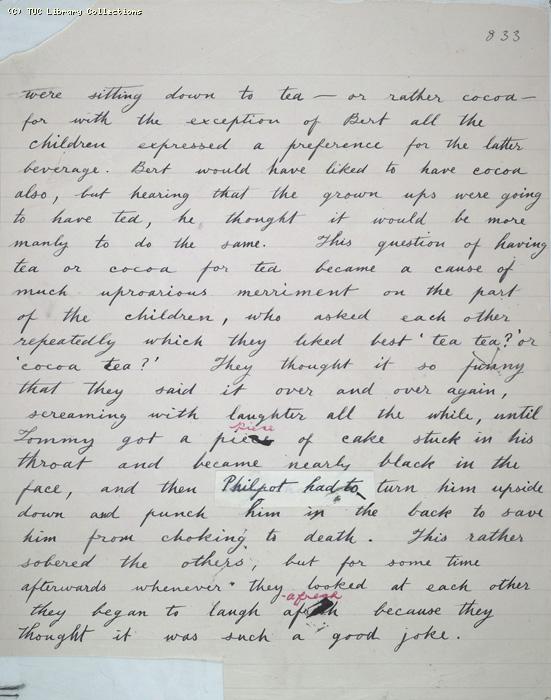 (C) TUC Library Collections
833
were sitting down to tea — or rather cocoa —
for with the exception of Bert all the
children expressed a preference for the latter
beverage. Bert would have liked to have cocoa
also, but hearing that the grown ups were going
to have tea, he thought it would be more
manly to do the same. This question of having
tea or cocoa for tea became a cause of
much uproarious merriment on the part
of the children, who asked each other
repeatedly which they liked best 'tea tea?' or
'cocoa tea?' They thought it so funny
that they said it over and over again,
screaming with laughter all the while, until
piece
Tommy got a piece of cake stuck in his
throat and became nearly black in the
face, and then Philpot had to turn him upside
down and punch him in the back to save
him from choking to death. This rather
sobered the others, but for some time
afterwards whenever they looked at each other
afresh
they began to laugh afresh because they
thought it was such a good joke.